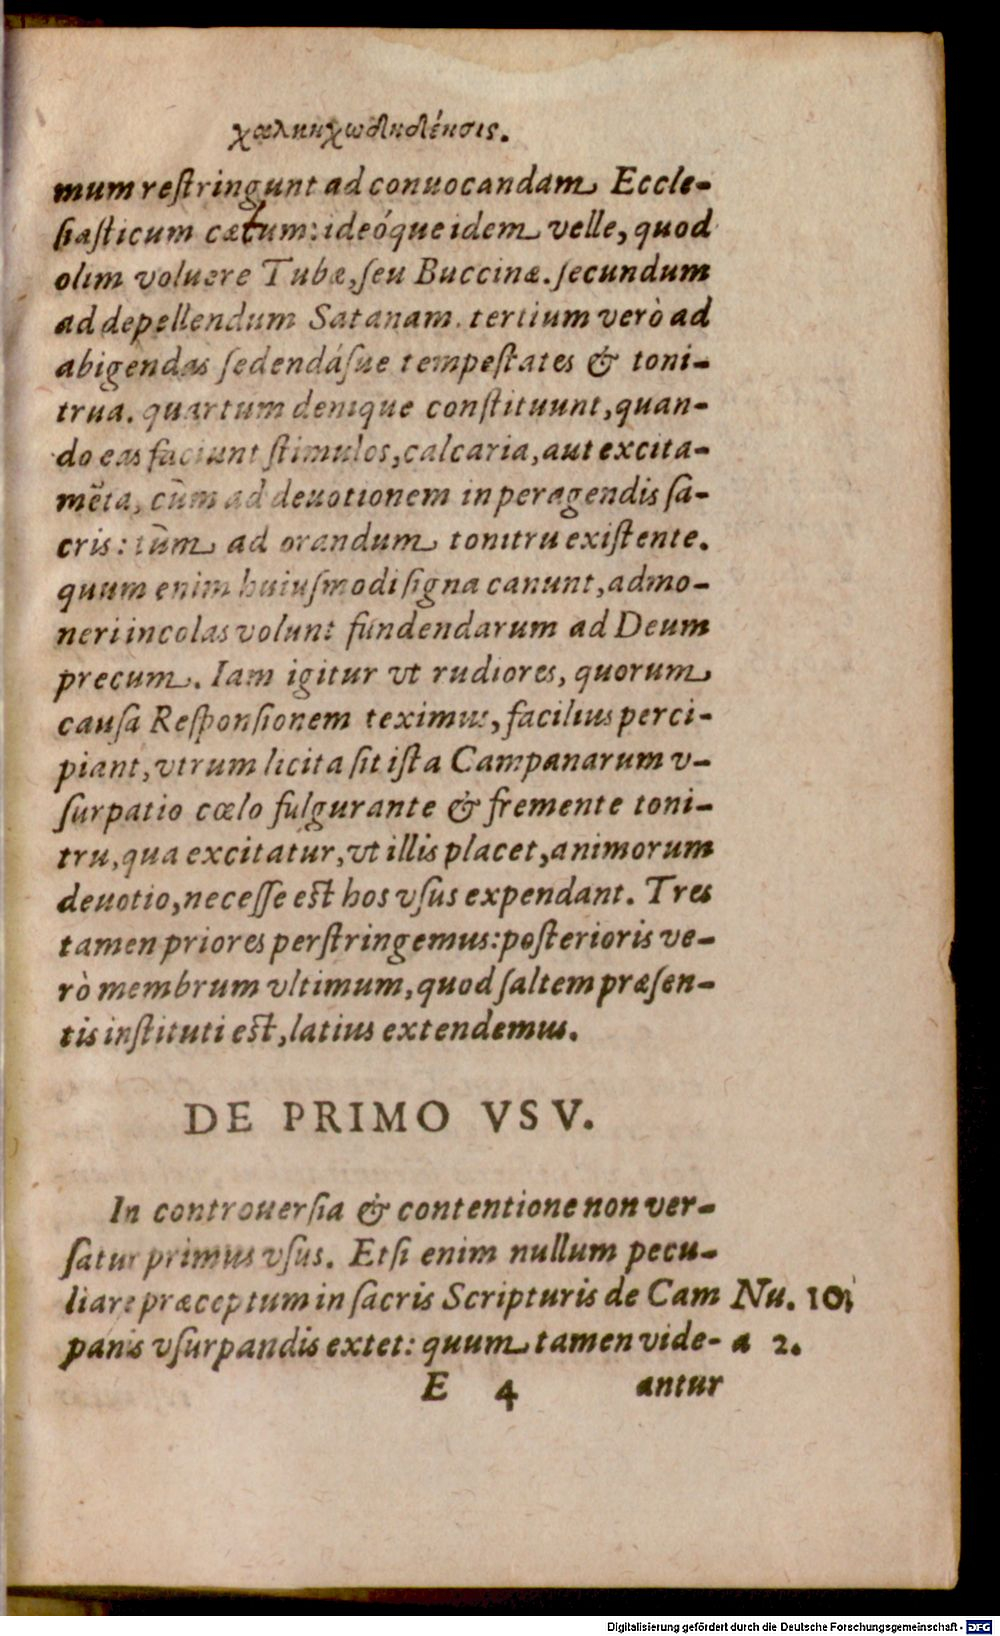 χαλκηχωδωδιένσις.
mum reſtringunt ad conuocandam Eccle-
ſiaſticum cætum: ideóque idem velle, quod
olim voluere Tubæ, ſeu Buccinæ. ſecundum
ad depellendum Satanam. tertium verò ad
abigendas ſedendáſue tempeſtates & toni-
trua. quartum denique conſtituunt, quan-
do eas faciunt ſtimulos, calcaria, aut excita-
mẽta, cùm ad deuotionem in peragendis ſa-
cris: tùm ad orandum tonitru exiſtente.
quum enim huiuſmodi ſigna canunt, admo-
neri incolas volunt fundendarum ad Deum
precum. Iam igitur vt rudiores, quorum
cauſa Reſponſionem teximus, facilius perci-
piant, vtrum licita ſit iſta Campanarum v-
ſurpatio cœlo fulgurante & fremente toni-
tru, qua excitatur, vt illis placet, animorum
deuotio, neceſſe eſt hos vſus expendant. Tres
tamen priores perſtringemus: poſterioris ve-
rò membrum vltimum, quod ſaltem præſen-
tis inſtituti eſt, latius extendemus.
DE PRIMO VSV.
In controuerſia & contentione non ver-
ſatur primus vſus. Etſi enim nullum pecu-
liare præceptum in ſacris Scripturis de Cam Nu. 10.
panis vſurpandis extet: quum tamen vide- a 2.
E 4 antur
Digitalisierung gefördert durch die Deutsche Forschungsgemeinschaft - DFG